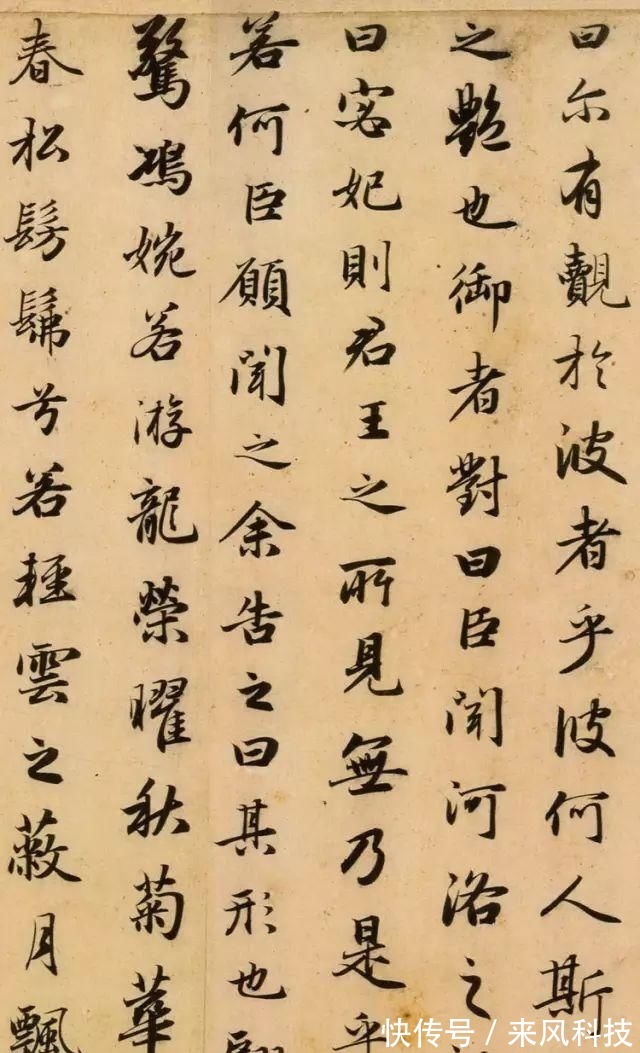 曰尔有觌於彼者乎彼何人斯
之艷也御者對曰臣聞河洛之
曰宓妃則君王之所見無乃是乎
若何臣願聞之余告之曰其形也翩
驚鴻婉若游龍榮曜秋菊華
春松髣髴兮若輕雲之蔽月飄
快传号/来风科技